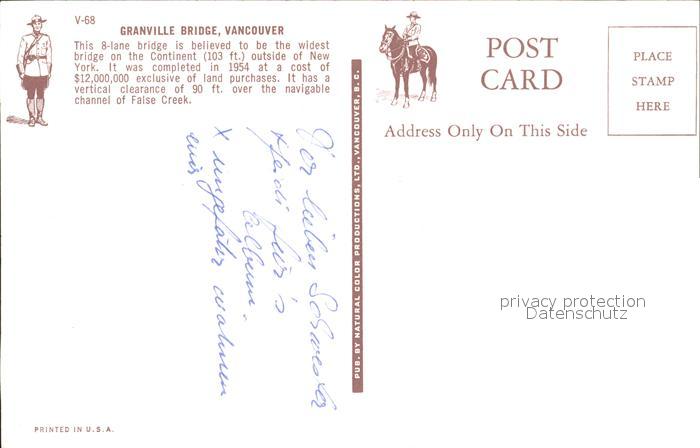 V-68
GRANVILLE BRIDGE, VANCOUVER
This 8-lane bridge is believed to be the widest
bridge on the Continent (103 ft.) outside of New
York. It was completed in 1954 at a cost of
$12,000,000 exclusive of land purchases. It has a
vertical clearance of 90 ft. over the navigable
channel of False Creek.
POST
CARD
Address Only On This Side
PLACE
STAMP
HERE
PUB. BY NATURAL COLOR PRODUCTIONS, LTD., VANCOUVER, B. C.
Der lieben Schwester
Heidi für's
Album.
x ungefähr wohnen
wir
privacy protection
Datenschutz
PRINTED IN U.S.A.